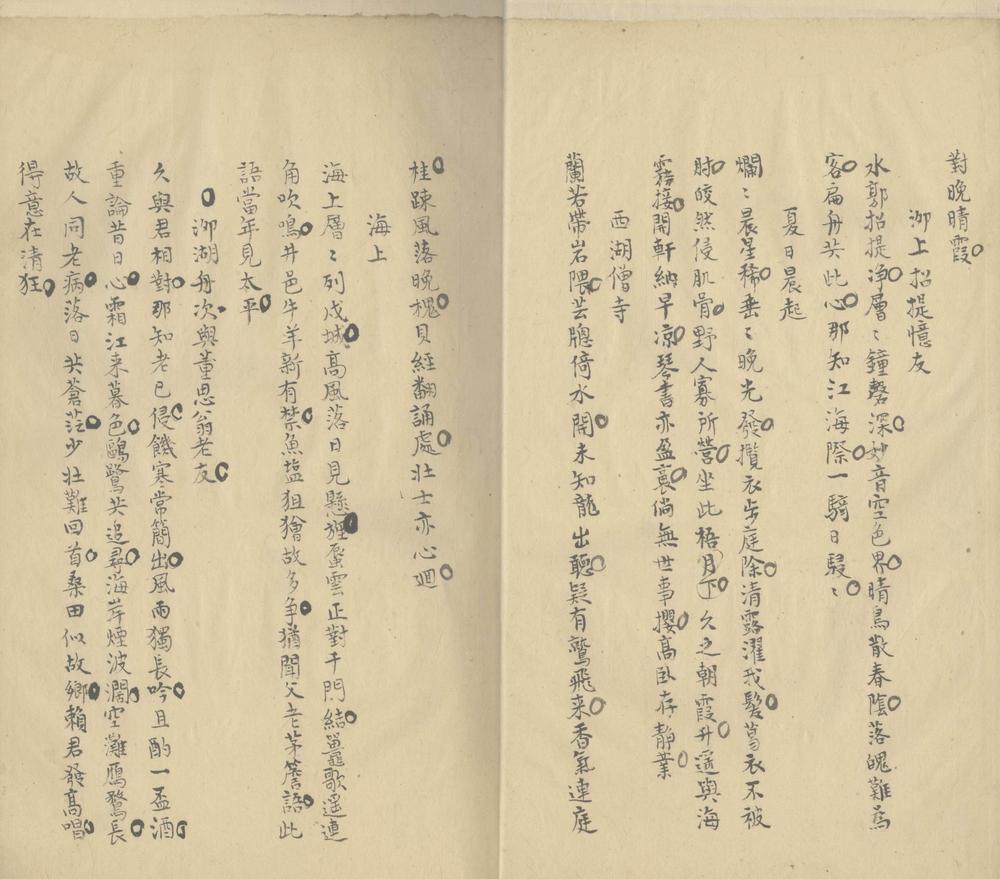 對晚晴霞
泖上招提憶友
水郭招提淨層〻鐘磬深妙音空色界晴鳥散春陰落魄難為
客扁舟共此心那知江海際一騎日駸〻
夏日晨起
爛〻晨星稀垂〻晚光發攬衣步庭除清露濯我髮葛衣不被
肘皎然侵肌骨野人寡所營坐此梧月下久之朝霞升遥與海
霧接開軒納早凉琴書亦盈裹倘無世事攖高卧存靜業
西湖僧寺
蘭若帶岩隈芸牕倚水開未知龍出聽疑有鷲飛来香氣連庭
桂踈風落晚槐貝經翻誦處壯士亦心廻
海上
海上層〻列戍城高風落日見懸旌蜃雲正對千門結鼉歌遥連
角吹鳴井邑牛羊新有禁魚塩狙獪故多争猶聞父老茅簷語此
語當年見太平
泖湖舟次與董思翁老友
久與君相對那知老已侵饑寒常簡出風雨獨長吟且酌一盃酒
重論昔日心霜江来暮色鷗鷺共追尋海岸煙波濶空灘鴈鶩長
故人同老病落日共蒼茫少壯難回首桑田似故鄉賴君發高唱
得意在清狂